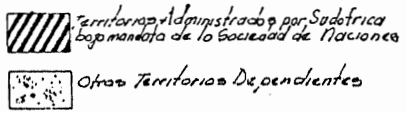 Territorios Administrados por Sudofrica
bajo mandato de la Sociedad de Naciones
Otros Territorios Dependientes